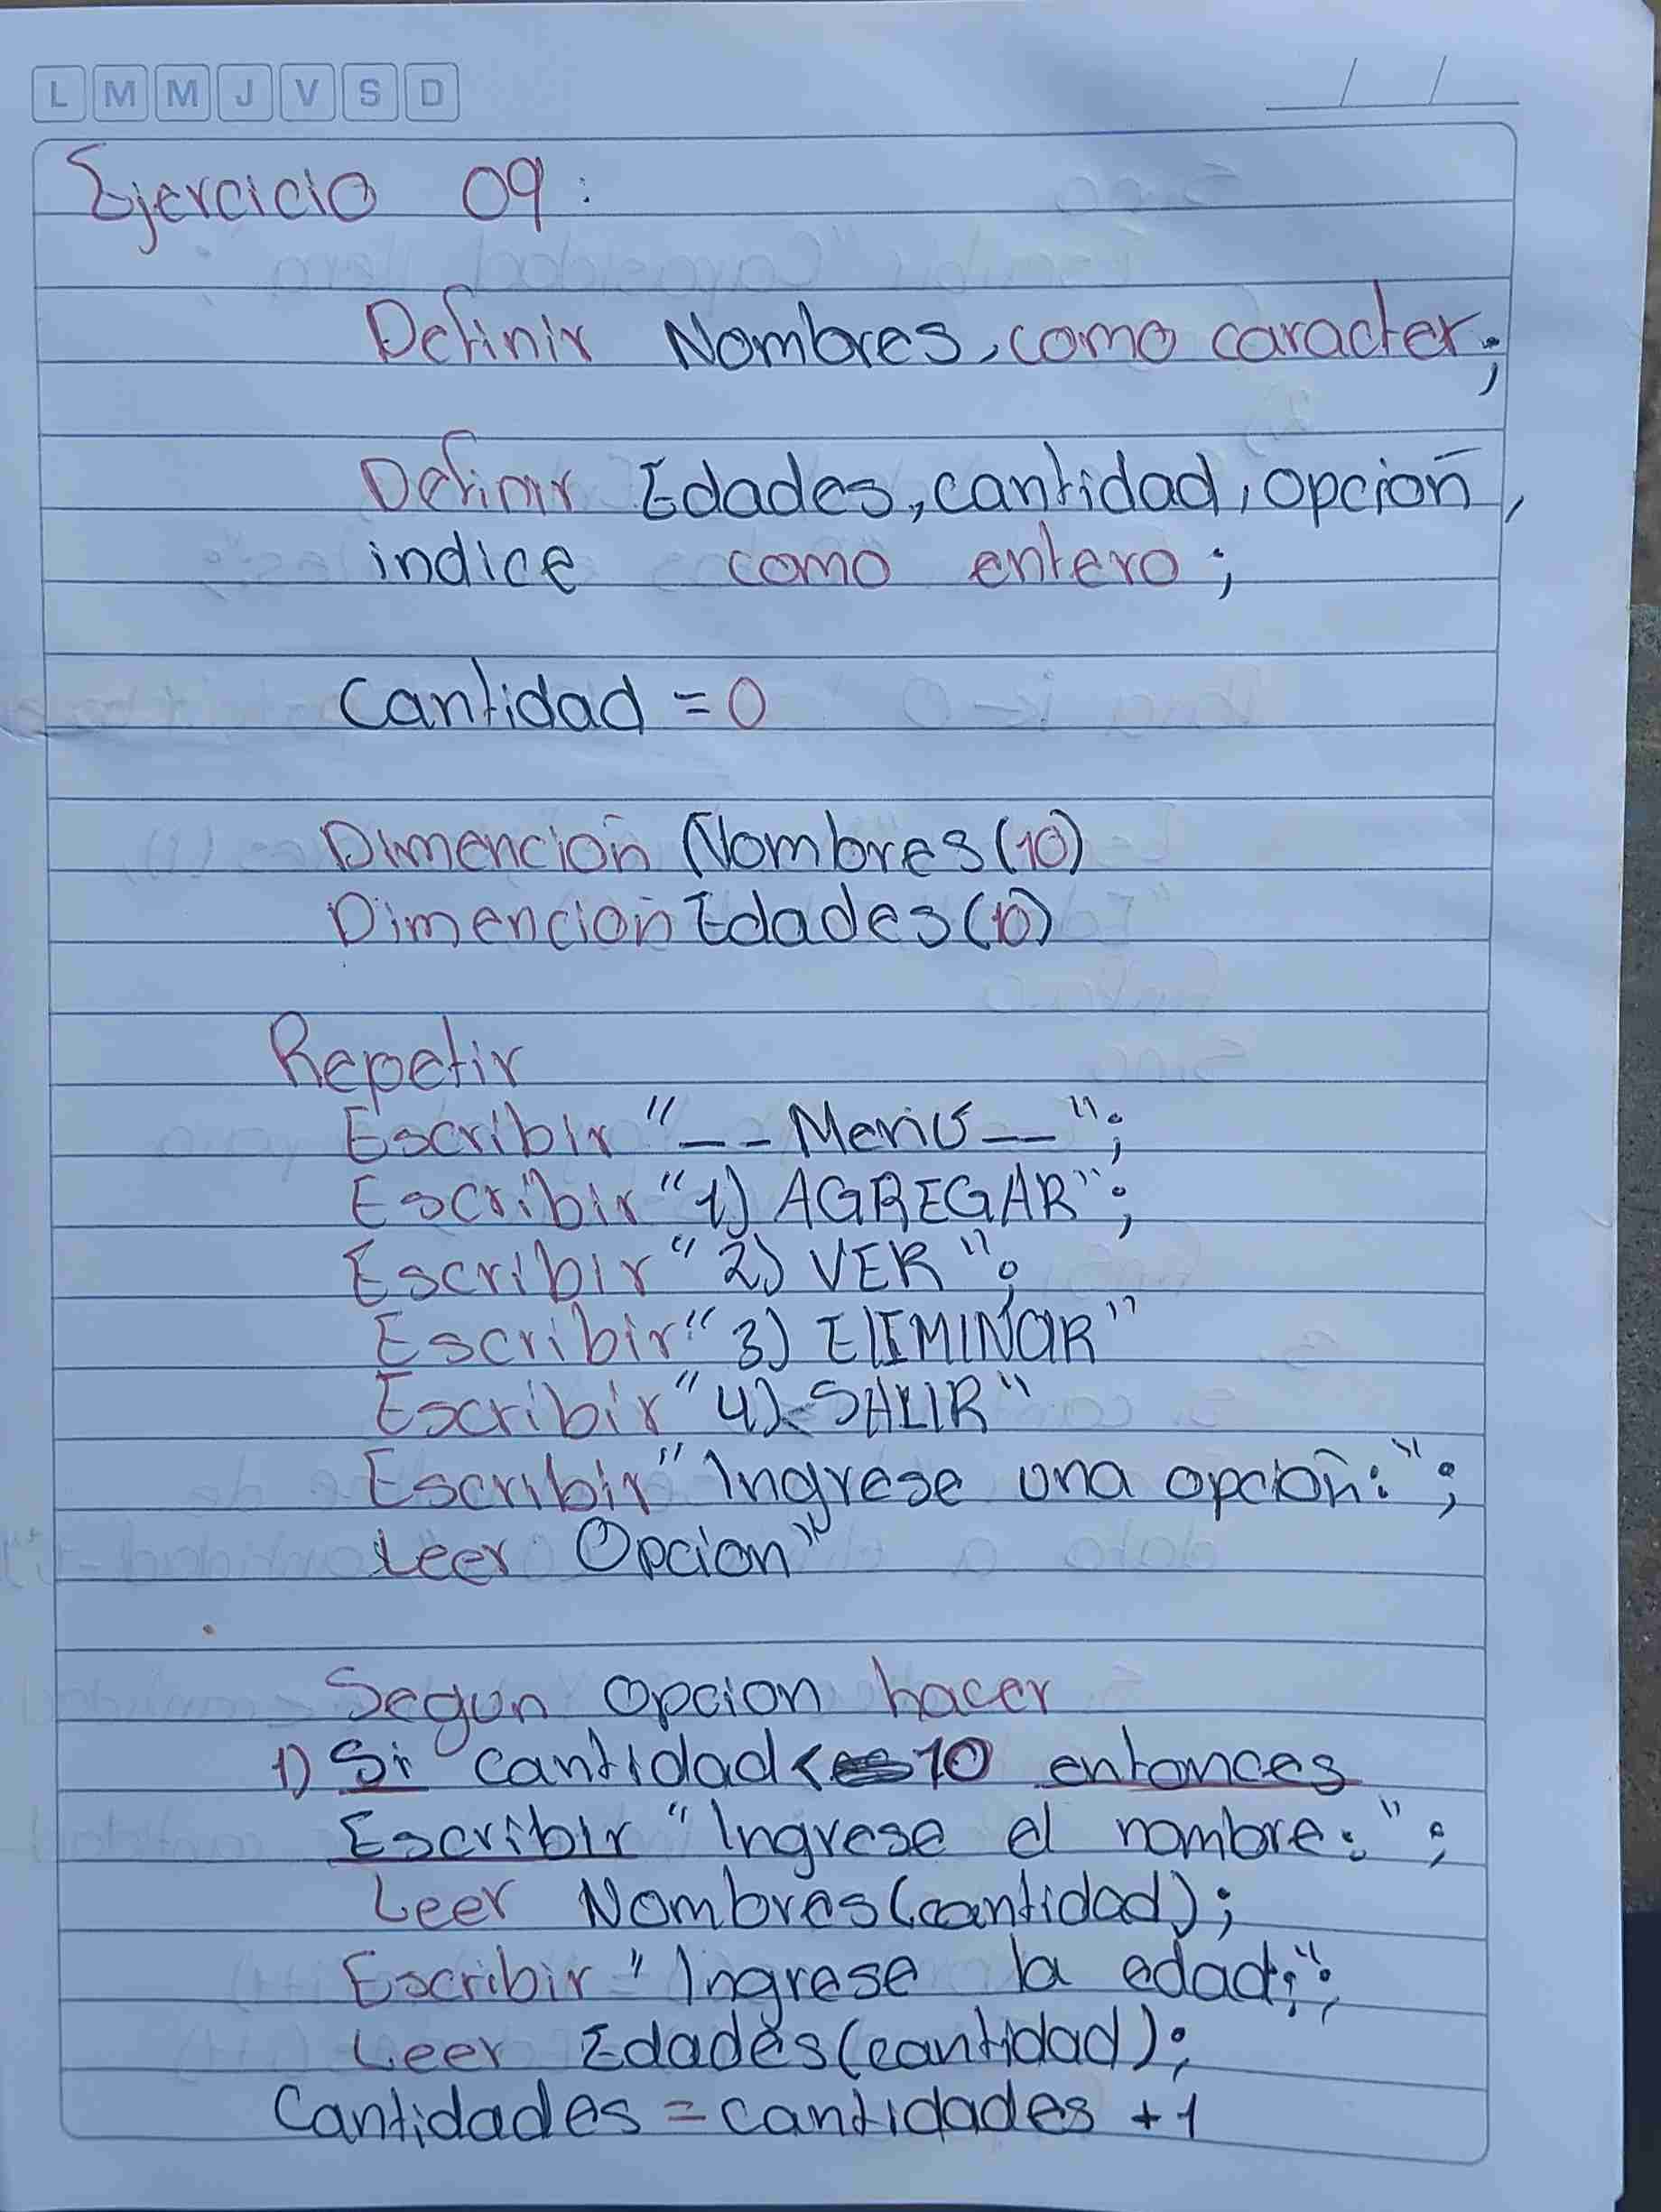 L M M J V S D / /
Ejercicio 09:
Definir Nombres, como caracter;
Definir Edades, cantidad, opción,
indice como entero;
Cantidad = 0
Dimención Nombres(10)
Dimención Edades(10)
Repetir
Escribir "-- Menú --";
Escribir "1) AGREGAR";
Escribir "2) VER";
Escribir "3) ElIMINaR"
Escribir "4) SALIR"
Escribir "Ingrese una opción:";
Leer Opcion"
Segun opcion hacer
1) Si cantidad < 10 entonces
Escribir "Ingrese el nombre:";
Leer Nombres(cantidad);
Escribir "Ingrese la edad:";
Leer Edades(cantidad);
Cantidades = cantidades + 1